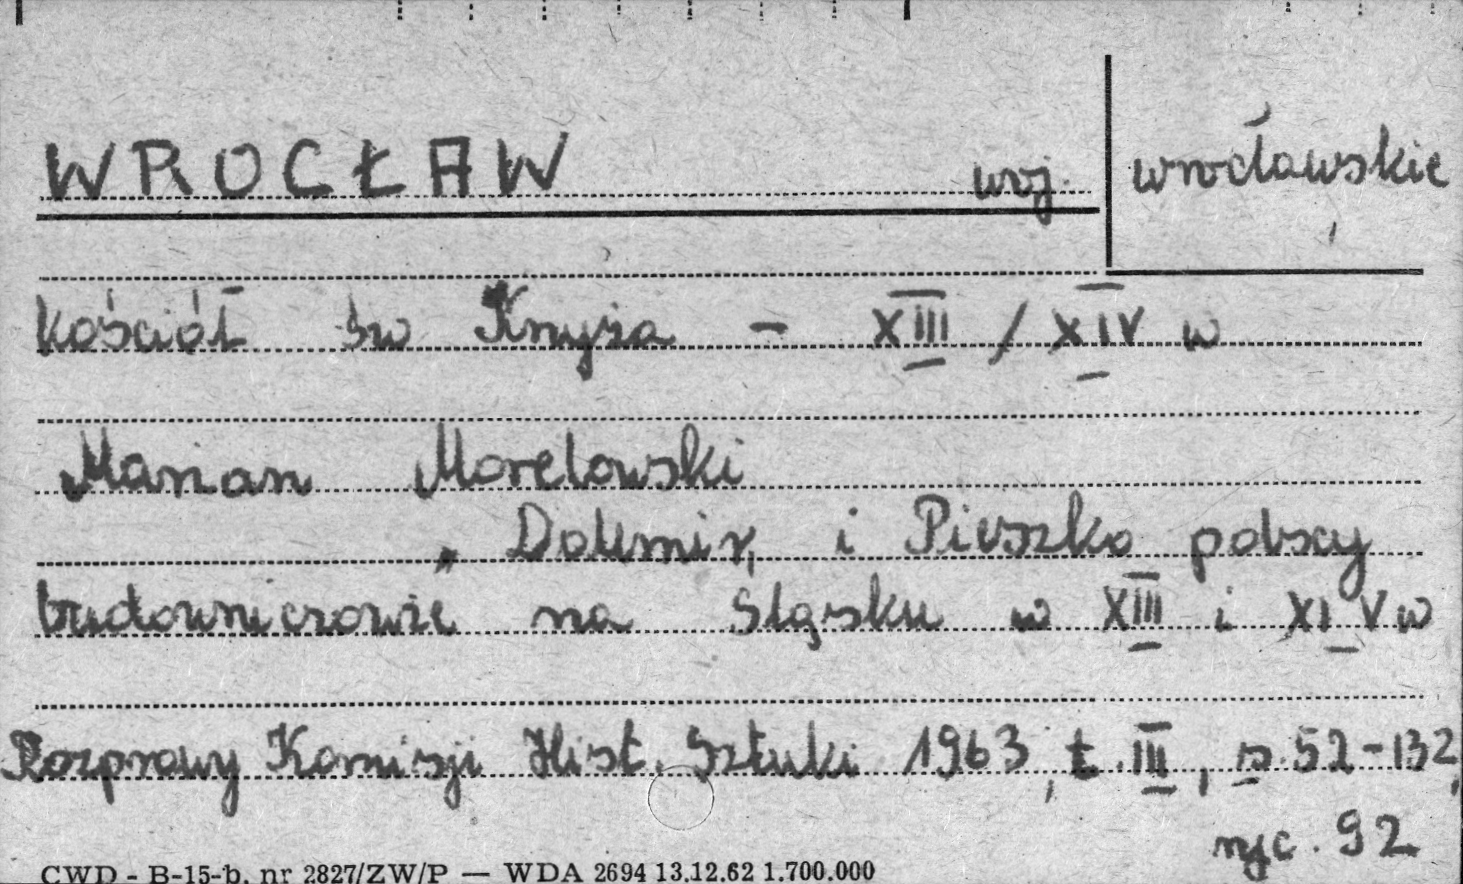 WROCŁAW woj. wrocławskie
kościół św Krzyża - XIII / XIV w
Marian Morelowski
„Dalemir, i Pieszko polscy
budowniczowie na Śląsku w XIII i XIV w
Rozprawy Komisji Hist. Sztuki 1963, t. III, s. 52-132,
ryc. 92
CWD - B-15-b, nr 2827/ZW/P — WDA 2694 13.12.62 1.700.000